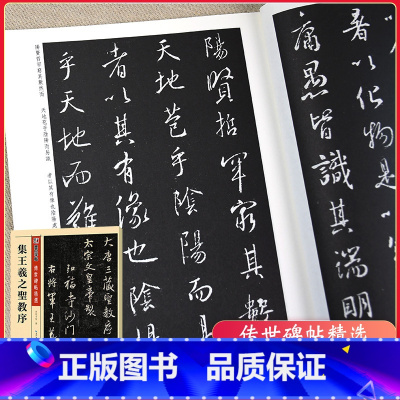 以化物是
庸愚皆識其端明
陽賢哲罕窮其數
天地苞乎陰陽而易
者以其有像也陰陽
乎天地而難
陽賢哲罕窮其數然而 天地苞乎陰陽而易識 者以其有像也陰陽處
大唐三藏聖教序
太宗文皇帝製
弘福寺沙門
右將軍王羲
集王羲之聖教序
传世碑帖精选